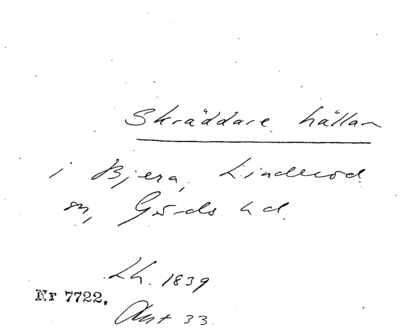 Skräddare hällan
i Bjera, Linderöd
sn, Gärds hd.
Lh. 1839
Nr 7722.
Akt 33.